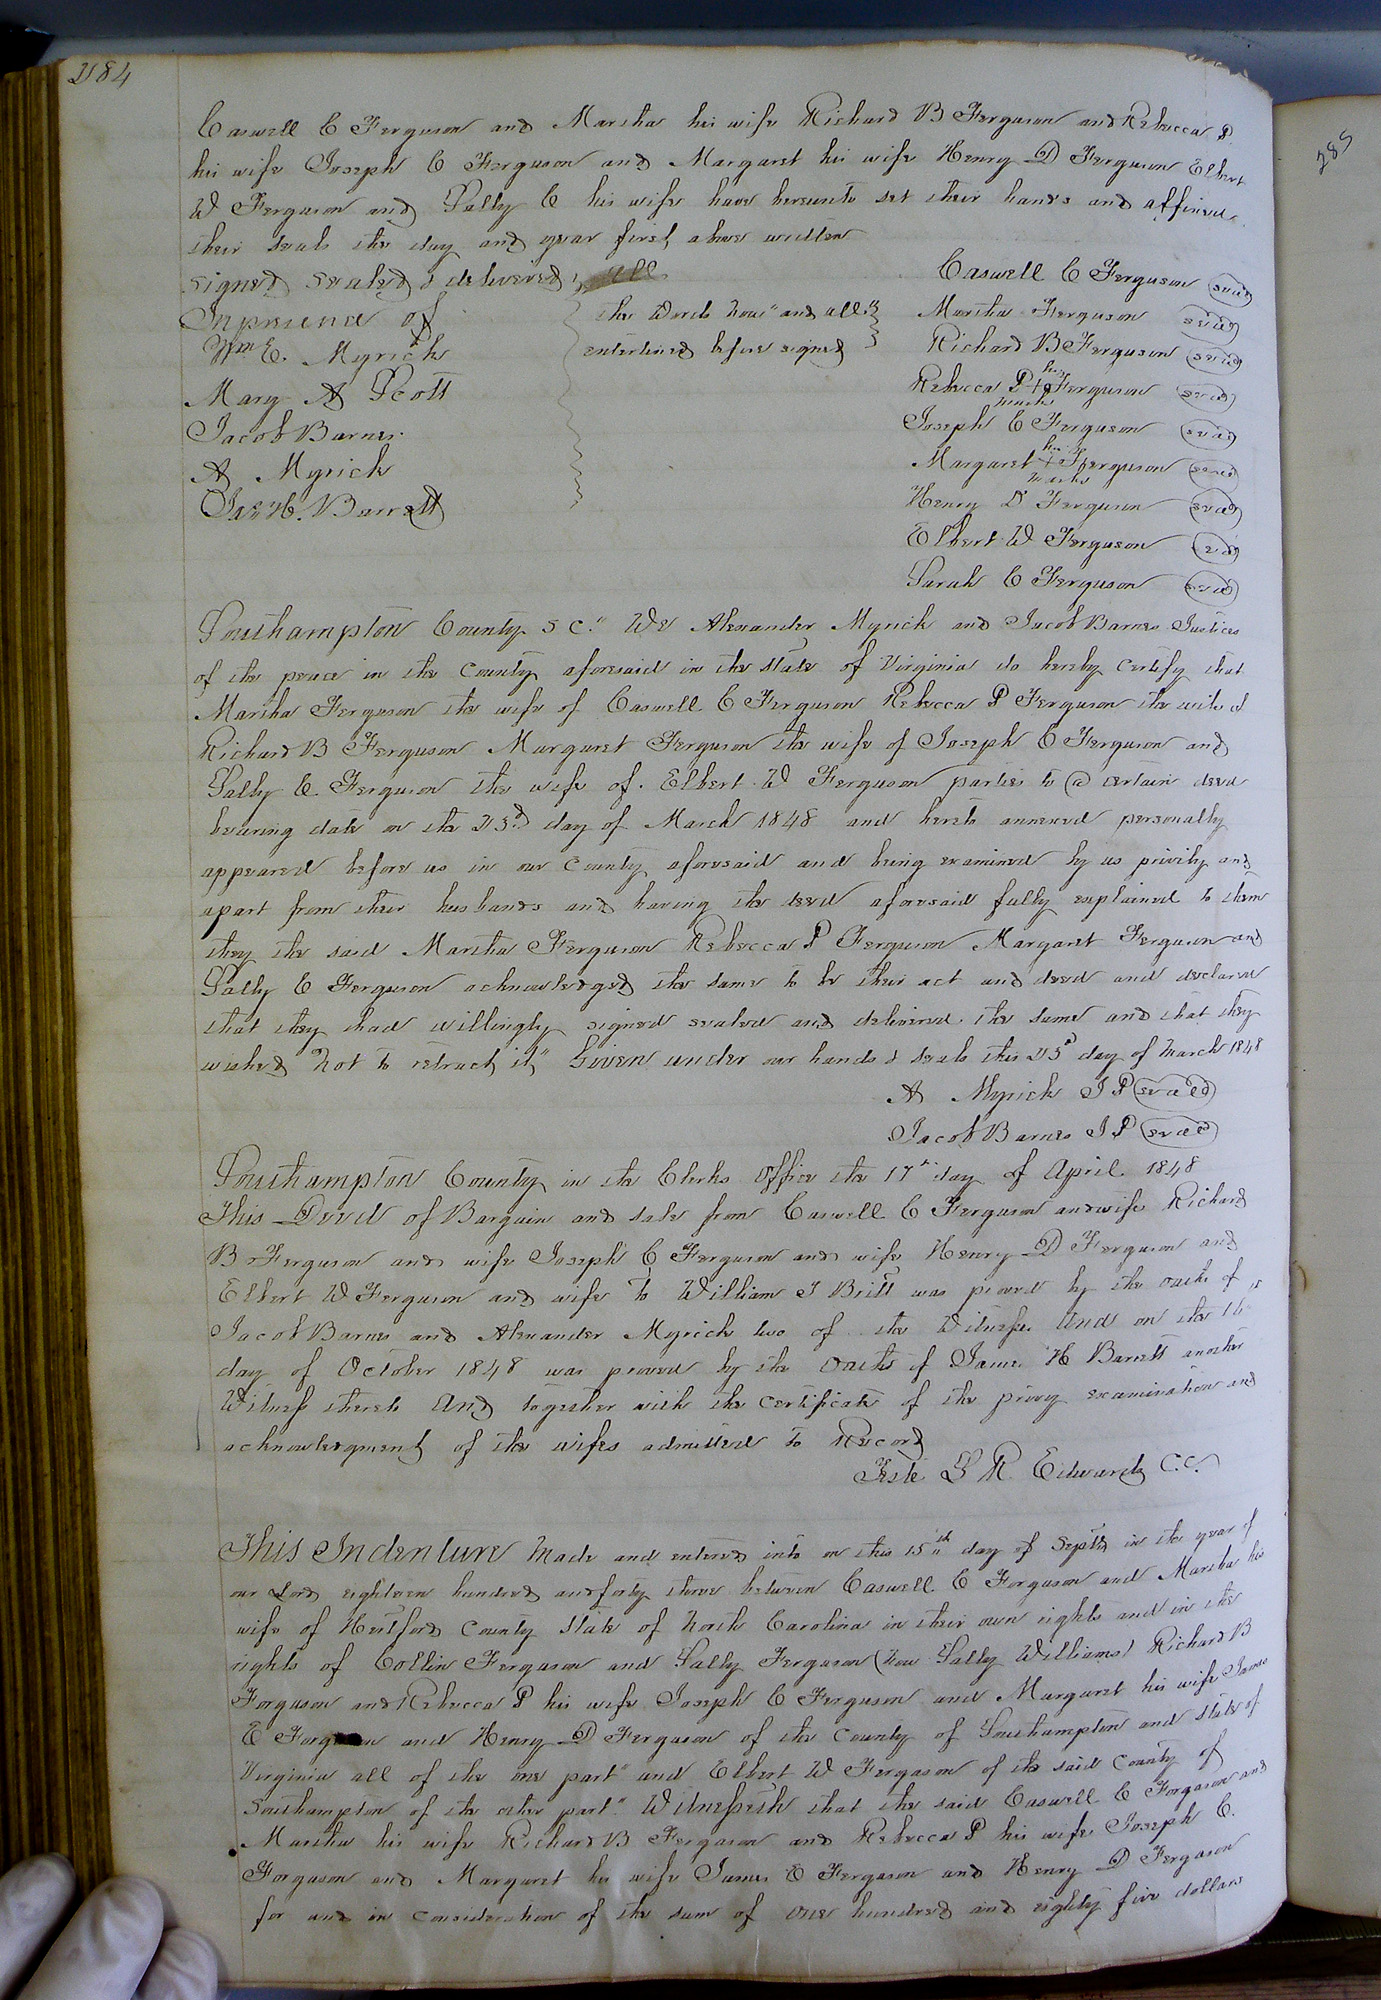 284
285
Caswell C Ferguson and Martha his wife Richard B Ferguson and Rebecca P
his wife Joseph C Ferguson and Margaret his wife Henry D Ferguson Elbert
W Ferguson and Sally C his wife have hereunto set their hands and affixed
their seals the day and year first above written
signed sealed & delivered all
In presence of
Wm C. Myrick
Mary A Scott
Jacob Barnes
A Myrick
Jas H. Barrett
the words now" and all"
enterlined before signed
Caswell C Ferguson seal
Martha Ferguson seal
Richard B Ferguson seal
Rebecca P her + mark Ferguson seal
Joseph C Ferguson seal
Margaret her + mark Ferguson seal
Henry D Ferguson seal
Elbert W Ferguson seal
Sarah C Ferguson seal
Southampton County S C." We Alexander Myrick and Jacob Barnes Justices
of the peace in the County aforesaid in the state of Virginia do hereby certify that
Martha Ferguson the wife of Caswell C Ferguson Rebecca P Ferguson the wife of
Richard B Ferguson Margaret Ferguson the wife of Joseph C Ferguson and
Sally C. Ferguson the wife of Elbert W Ferguson parties to a certain deed
bearing date on the 23rd day of March 1848 and hereto annexed personally
appeared before us in our County aforesaid and being examined by us privily and
apart from their husbands and having the deed aforesaid fully explained to them
they the said Martha Ferguson Rebecca P Ferguson Margaret Ferguson and
Sally C Ferguson acknowledged the same to be their act and deed and declared
that they had willingly signed sealed and delivered the same and that they
wished not to retract it" Given under our hands & seals this 23d day of March 1848
A Myrick J P seal
Jacob Barnes J P seal
Southampton County in the Clerks Office the 17th day of April 1848
This Deed of Bargain and sale from Caswell C Ferguson and wife Richard
B Ferguson and wife Joseph C Ferguson and wife Henry D Ferguson and
Elbert W Ferguson and wife to William J Britt was proved by the oaths of
Jacob Barnes and Alexander Myrick two of the Witnesses And on the 16th
day of October 1848 was proved by the oaths of James H Barrett another
Witness thereto And together with the certificate of the privy examination and
acknowledgment of the wifes admitted to Record
Teste L R Edwards C.C.
This Indenture Made and entered into on this 15th day of Septr in the year of
our Lord eighteen hundred and forty three between Caswell C Forguson and Martha his
wife of Hertford County State of North Carolina in their own rights and in the
rights of Collin Ferguson and Sally Ferguson (now Sally Williams) Richard B
Forguson and Rebecca P his wife Joseph C Ferguson and Margaret his wife James
E Forguson and Henry D Ferguson of the County of Southampton and State of
Virginia all of the one part" and Elbert W Fergason of the said County of
Southampton of the other part." Witnesseth that the said Caswell C Forgason and
Martha his wife Richard B Fergason and Rebecca P his wife Joseph C.
Forgason and Margaret his wife James E Fergason and Henry D Fergason
for and in consideration of the sum of one hundred and eighty five dollars